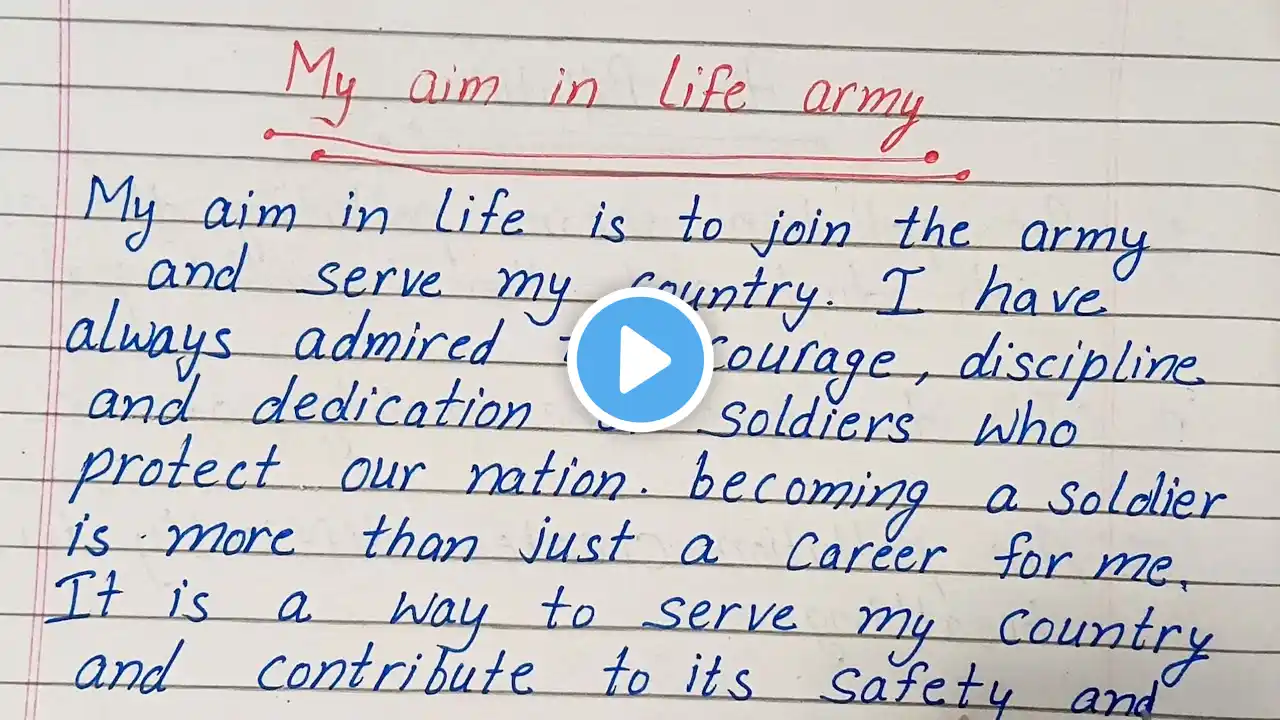 My aim in life army
My aim in life is to join the army
and serve my country. I have
always admired courage, discipline
and dedication soldiers who
protect our nation. becoming a soldier
is more than just a career for me.
It is a way to serve my country
and contribute to its safety and